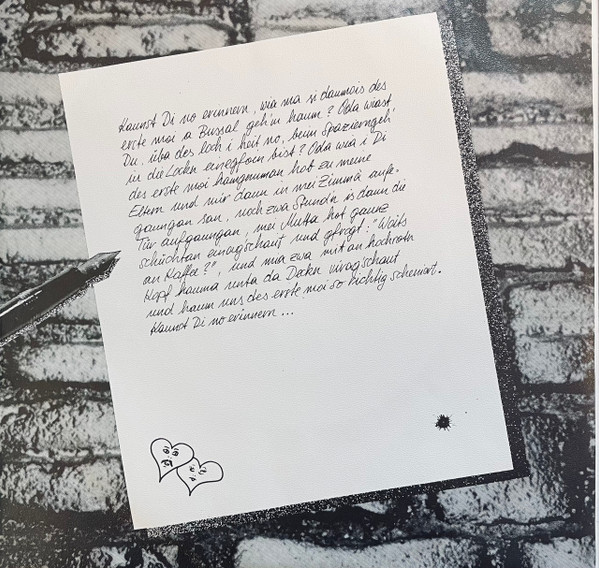 Kannst Di no erinnern, wia ma si daumois des
erste moi a Bussal geb'n haum? Oda wiast
Du, üba des Loch i heit no, beim Spaziern geh'
in die Locken einegfoin bist? Oda wia i Di
des erste moi hamgnumman hob zu meine
Eltern und mir dann in mei Zimma aufe-
gaungan san, noch zwa Stund'n is dann die
Tür aufgaungan, mei Mutta hot ganz
schüchtan einegschaut und gfrogt: "Woits
an Kaffee?", und ma zwa mit an hochrotn
Kopf hauma unta da Deckn viragschaut
und haum uns des erste moi so richtig scheniert.
Kannst Di no erinnern ...